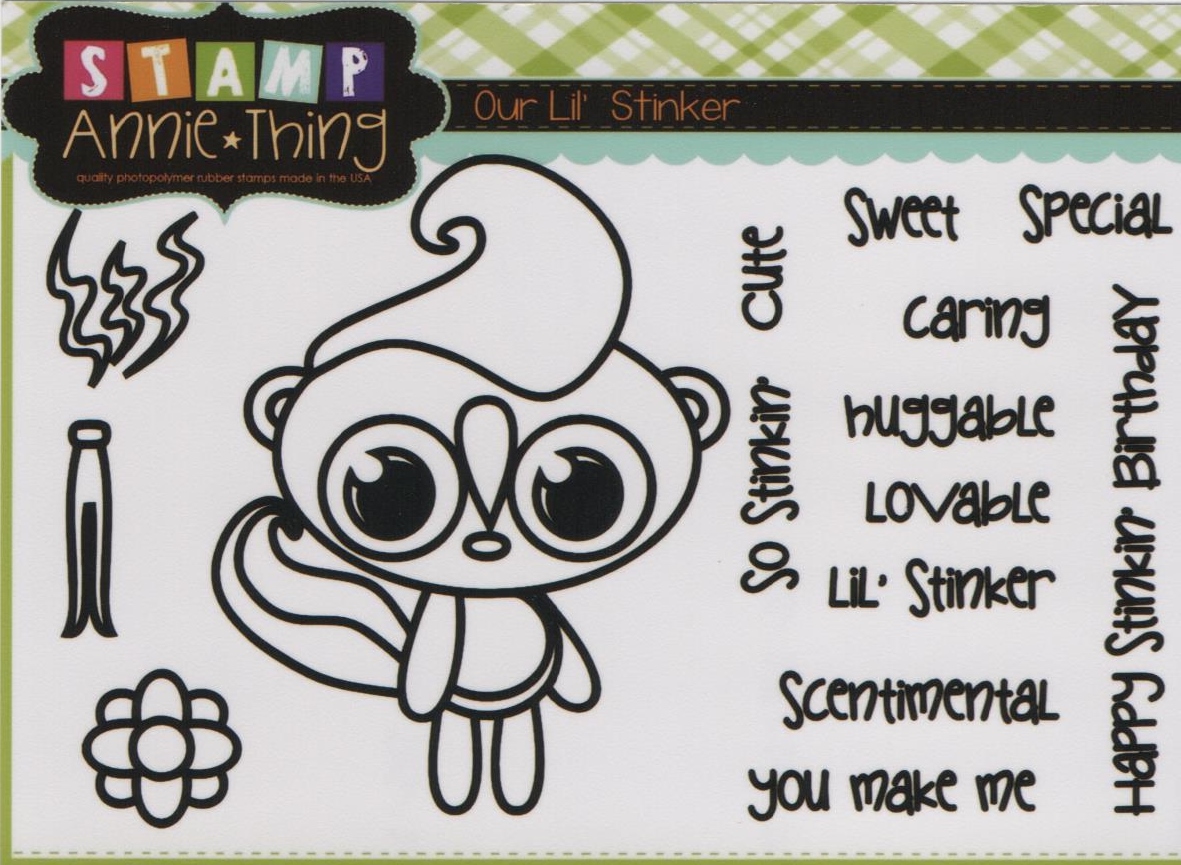 STAMP
Annie Thing
quality photopolymer rubber stamps made in the USA
Our Lil' Stinker
Sweet
Special
Cute
Caring
huggable
So Stinkin'
Lovable
Lil' Stinker
Scentimental
You make me
Happy Stinkin' Birthday